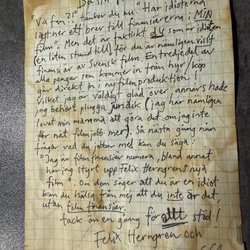 Va fan!" tänker du nu. Har idioterna
lagt ner ett brev till finansiärerna i MIN
låt? Men det är faktiskt du som är idioten
(en liten stund till) för du är nämligen visst
finansiär av Svensk film. En tredjedel av
alla pengar som kommer in från hyr/köp
går direkt in i ny filmproduktion!
Vilket jag är väldigt glad över, annars hade
jag behövt plugga juridik (jag har nämligen
lovat min mamma att göra det om jag inte
får nåt filmjobb mer). Så nästa gång nån
frågar vad du jobbar med kan du säga:
"Jag är filmfinansiär numera, bland annat
har jag styrt upp Felix Herngrens nya
film". Om dom säger att du är en idiot
kan du hälsa från mej att du inte är det,
utan filmfinansiär.
Tack än en gång för allt stöd!
Felix Herngren och